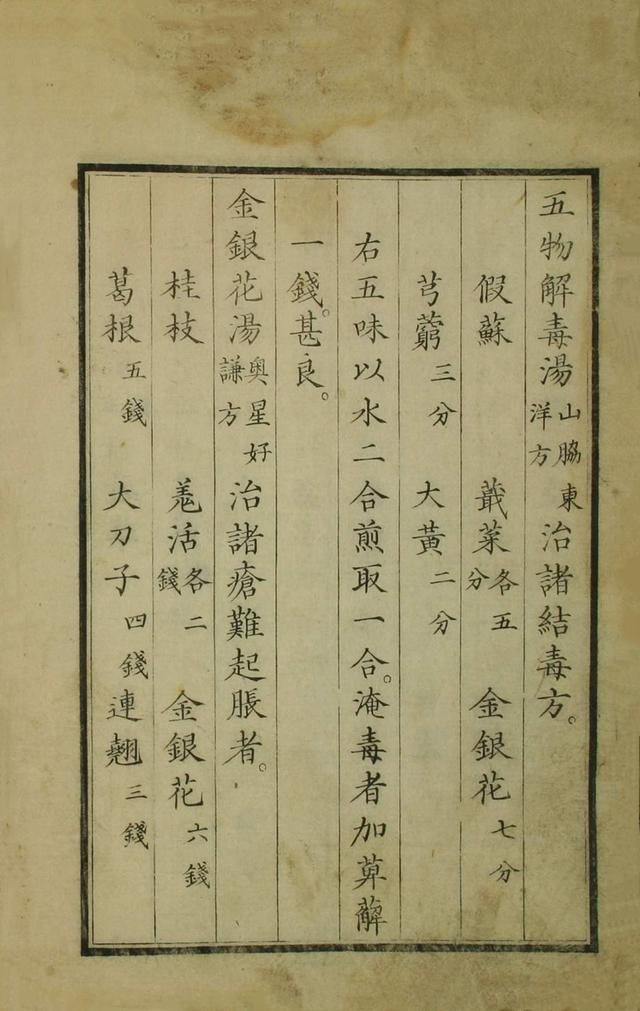 五物解毒湯山脇東洋方治諸結毒方。
假蘇 蕺菜各五分 金銀花七分
芎藭三分 大黃二分
右五味以水二合煎取一合。淹毒者加萆薢
一錢。甚良。
金銀花湯奥星好謙方治諸瘡難起脹者。
桂枝 羗活各二錢 金銀花六錢
葛根五錢 大刀子四錢 連翹三錢